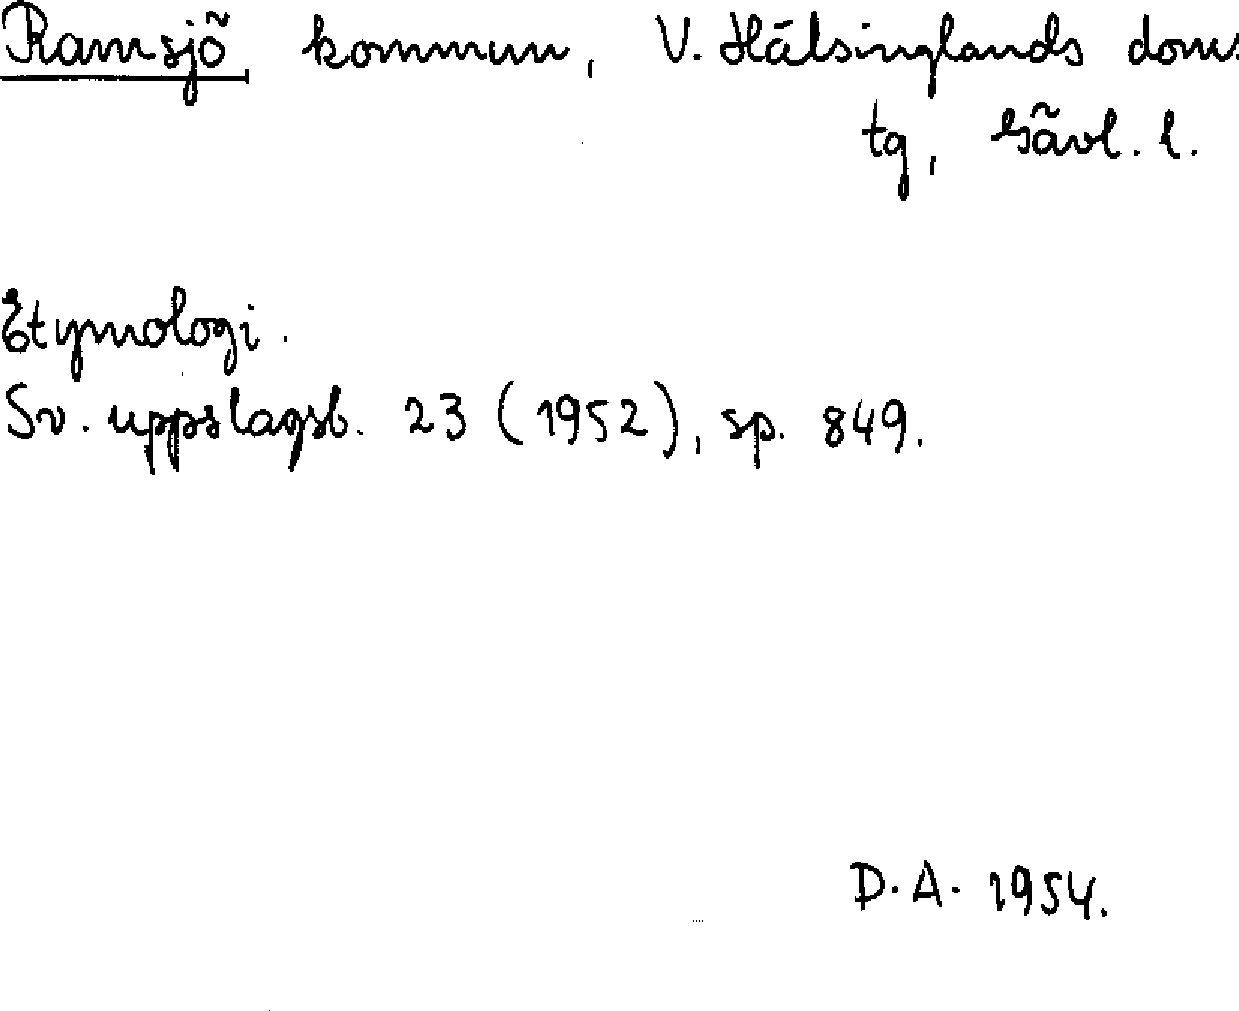 Ramsjö kommun, V. Hälsinglands doms.
tg, Gävl. l.
Etymologi.
Sv. uppslagsb. 23 (1952), sp. 849.
D. A. 1954.